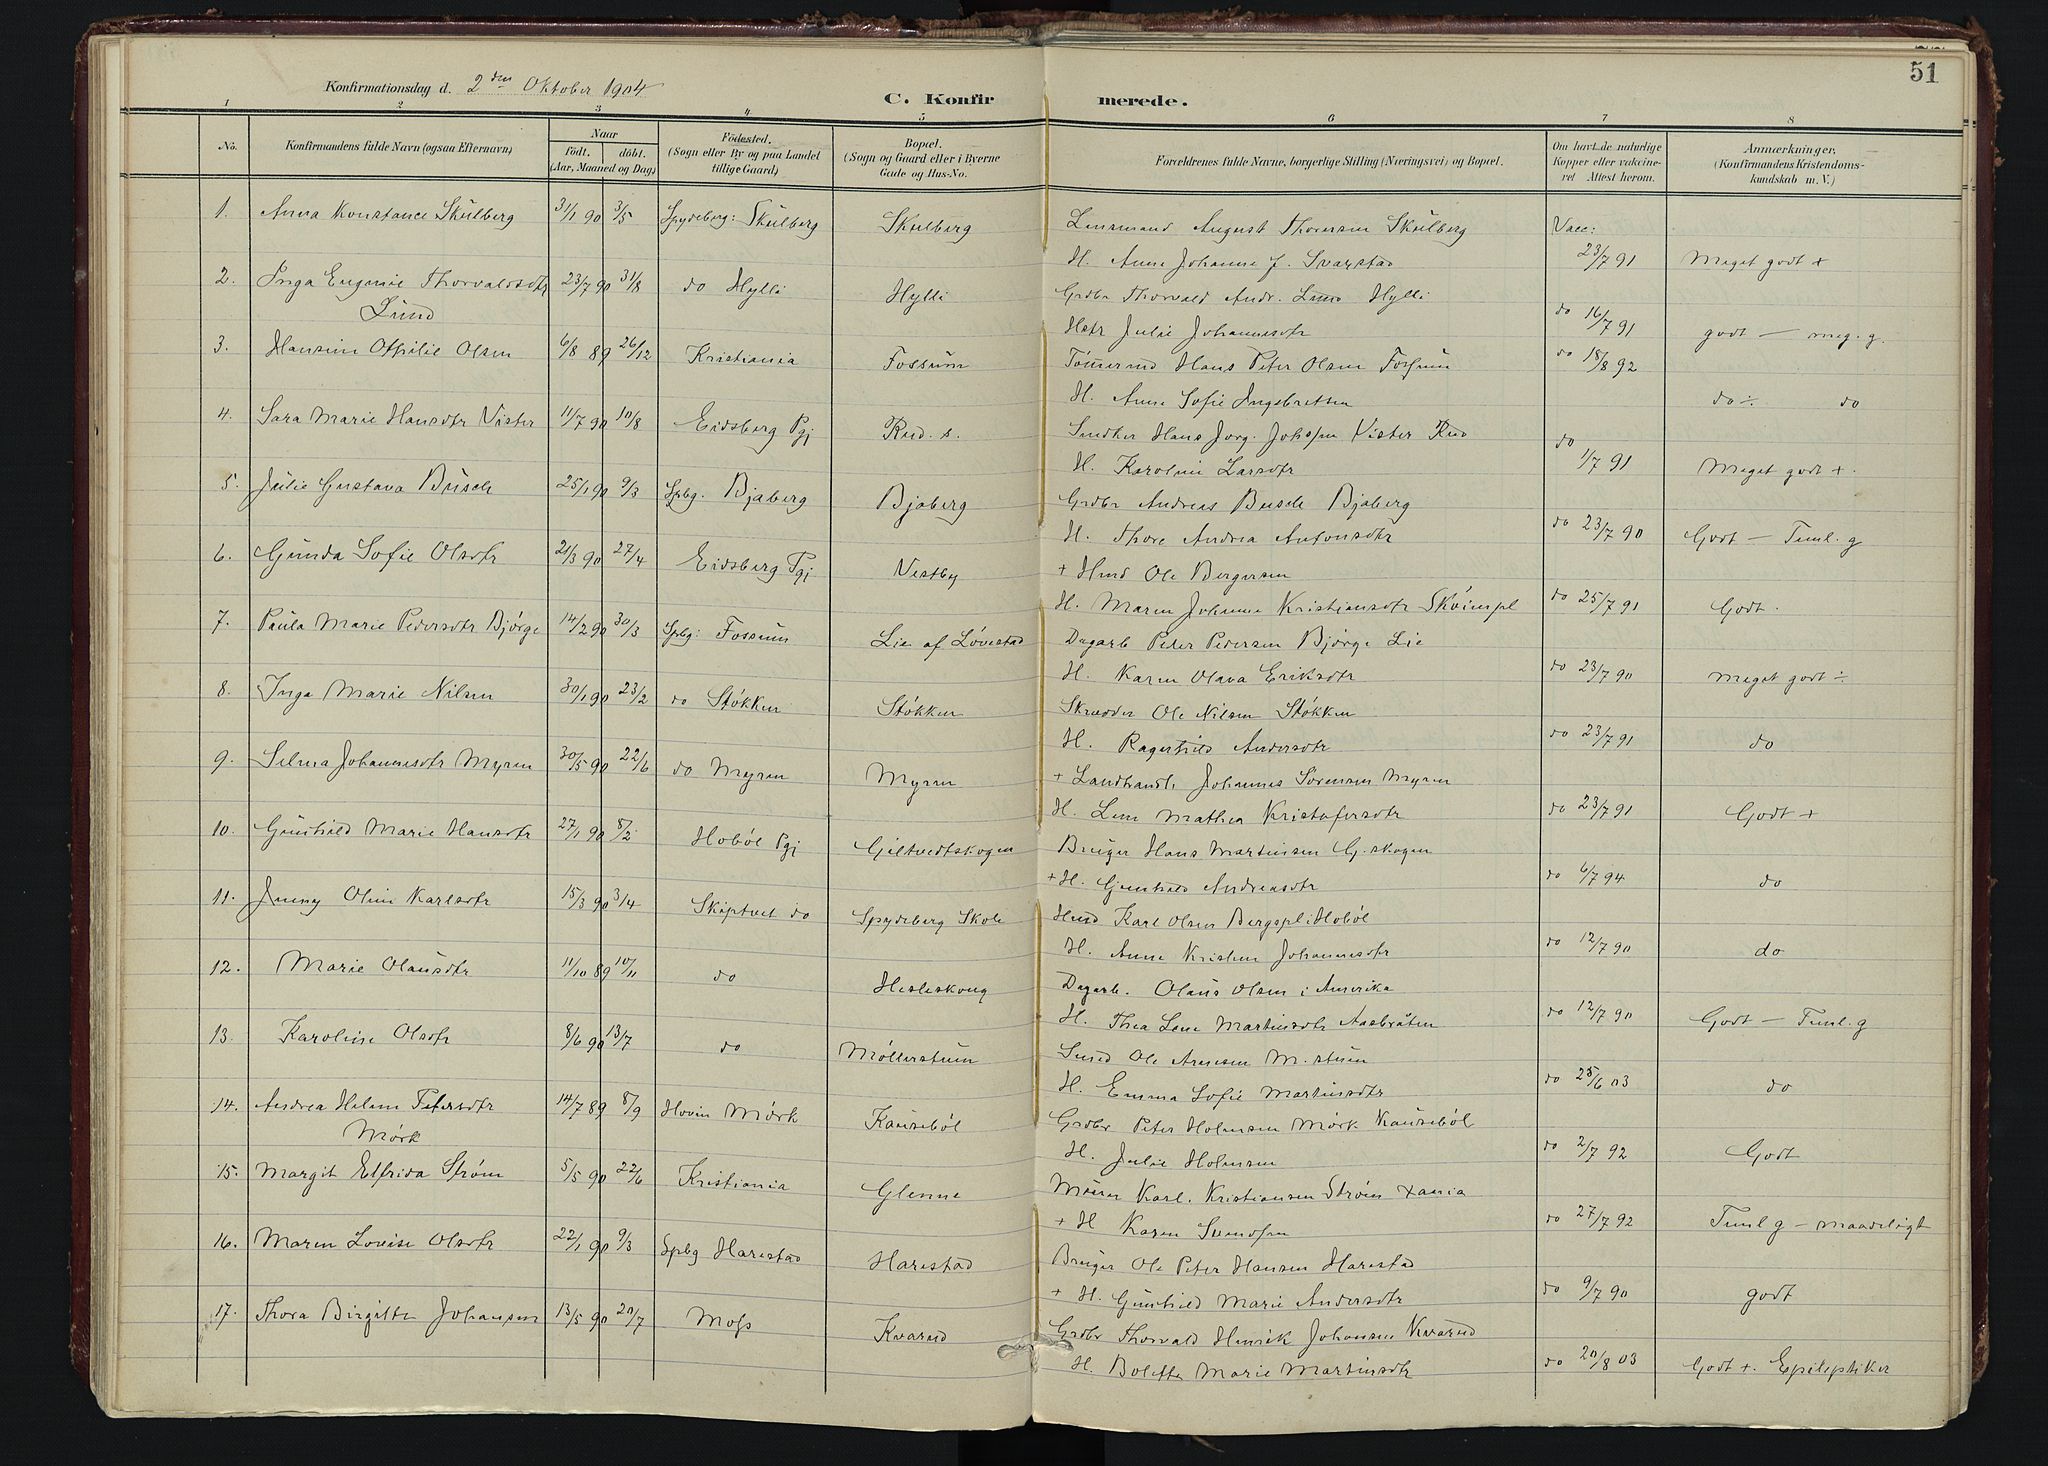 51
Konfirmationsdag d. 2den Oktober 1904
C. Konfirmerede.
1 2 3 4 5 6 7 8
No. Konfirmandens fulde Navn (ogsaa Efternavn) Naar født. døbt. (Aar, Maaned og Dag) Fødested. (Sogn eller By og paa Landet tillige Gaard) Bopæl. (Sogn og Gaard eller i Byerne Gade og Hus-No. Forældrenes fulde Navne, borgerlige Stilling (Næringsvei) og Bopæl. Om havt de naturlige Kopper eller vakcineret Attest herom. Anmærkninger. (Konfirmandens Kristendomskundskab m. V.)
1. Anna Konstance Skulberg 31/1 90 3/5 Spydeberg: Skulberg Skulberg Lensmand August Thoresen Skulberg Vacc:
H. Anne Johanne J. Svarstad 23/7 91 Meget godt +
2. Inga Eugenie Thorvaldsdtr 23/7 90 31/8 do Hylli Hylli Grdbr Thorvald Andr. Lund Hylli
Lund
Hstr Julie Johannesdtr do 16/7 91 godt — meg. g.
3. Hansine Othilie Olsen 6/8 89 26/12 Kristiania Fossum Tømmermd Hans Peter Olsen Fossum do 18/8 92
H. Anne Sofie Ingebretsen do ÷ do
4. Sara Marie Hansdtr Vister 11/7 90 10/8 Eidsberg Pgj Rud. s. Smedker Hans Jørg. Johssen Vister Rud
H. Karoline Larsdtr do 1/7 91 Meget godt +.
5. Julie Gustava Busch 25/1 90 9/3 Spbg. Bjaberg Bjaberg Grdbr Andreas Busch Bjaberg
H. Thore Andrea Antonsdtr do 23/7 90 Godt — Teml. g
6. Gunda Sofie Olsdtr 21/3 90 27/4 Eidsberg Pgj Vestby + Hmd Ole Bergersen
H. Maren Johanne Kristiansdtr Skoimpl do 25/7 91 Godt.
7. Paula Marie Pedersdtr Bjørge 14/2 90 30/3 Spbg: Fossum Lie af Løvestad Dagarb Peter Pedersen Bjørge Lie
H. Karen Olava Eriksdtr do 23/7 90 Meget godt ÷
8. Inga Marie Nilsen 30/1 90 23/2 do Støkken Støkken Skrædder Ole Nilsen Støkken
H. Ragnhild Andersdtr do 23/7 91 do
9. Selma Johannesdtr Myren 30/5 90 22/6 do Myren Myren + Landhandl. Johannes Sørensen Myren
H. Lene Mathea Kristofersdtr do 23/7 91 Godt +
10. Gunhild Marie Hansdtr 27/1 90 8/2 Hobøl Pgj Giltvedtskogen Bruger Hans Martinsen G.skogen
+ H. Gunhild Andreasdtr do 6/7 94 do
11. Jenny Oline Karlsdtr 15/3 90 3/4 Skiptvet do Spydeberg Skole Hmd Karl Olsen Bergspl i Hobøl
H. Anne Kristine Johannesdtr do 12/7 90 do
12. Marie Olausdtr 11/10 89 10/11 do Hesleskoug Dagarb. Olaus Olsen i Amerika
H. Thea Lene Martinsdtr Aasbråten do 12/7 90 Godt — Teml. g
13. Karoline Olsdtr 8/6 90 13/7 do Møllerstuen Smed Ole Arnesen M.stuen
H. Emma Sofie Martinsdtr do 25/6 03 do
14. Andrea Helene Petersdtr 14/7 89 8/9 Hovin Mørk Kauserbøl Grdbr Peter Holmsen Mørk Kauserbøl
Mørk
H. Julie Holmsen do 2/7 92 Godt
15. Margit Elfrida Strøm 5/5 90 22/6 Kristiania Glenne Murer Karl. Kristiansen Strøm Xania
+ H Karen Svendsen do 27/7 92 Teml g — maadeligt
16. Maren Lovise Olsdtr 22/1 90 9/3 Spbg Harestad Harestad Bruger Ole Peter Hansen Harestad
+ H. Gunhild Marie Andersdtr do 9/7 90 godt
17. Thora Birgitte Johansen 13/5 90 20/7 Moss Kvarud Grdbr Thorvald Henrik Johansen Kvarud
H. Bolette Marie Martinsdtr do 20/8 03 Godt +. Epileptiker